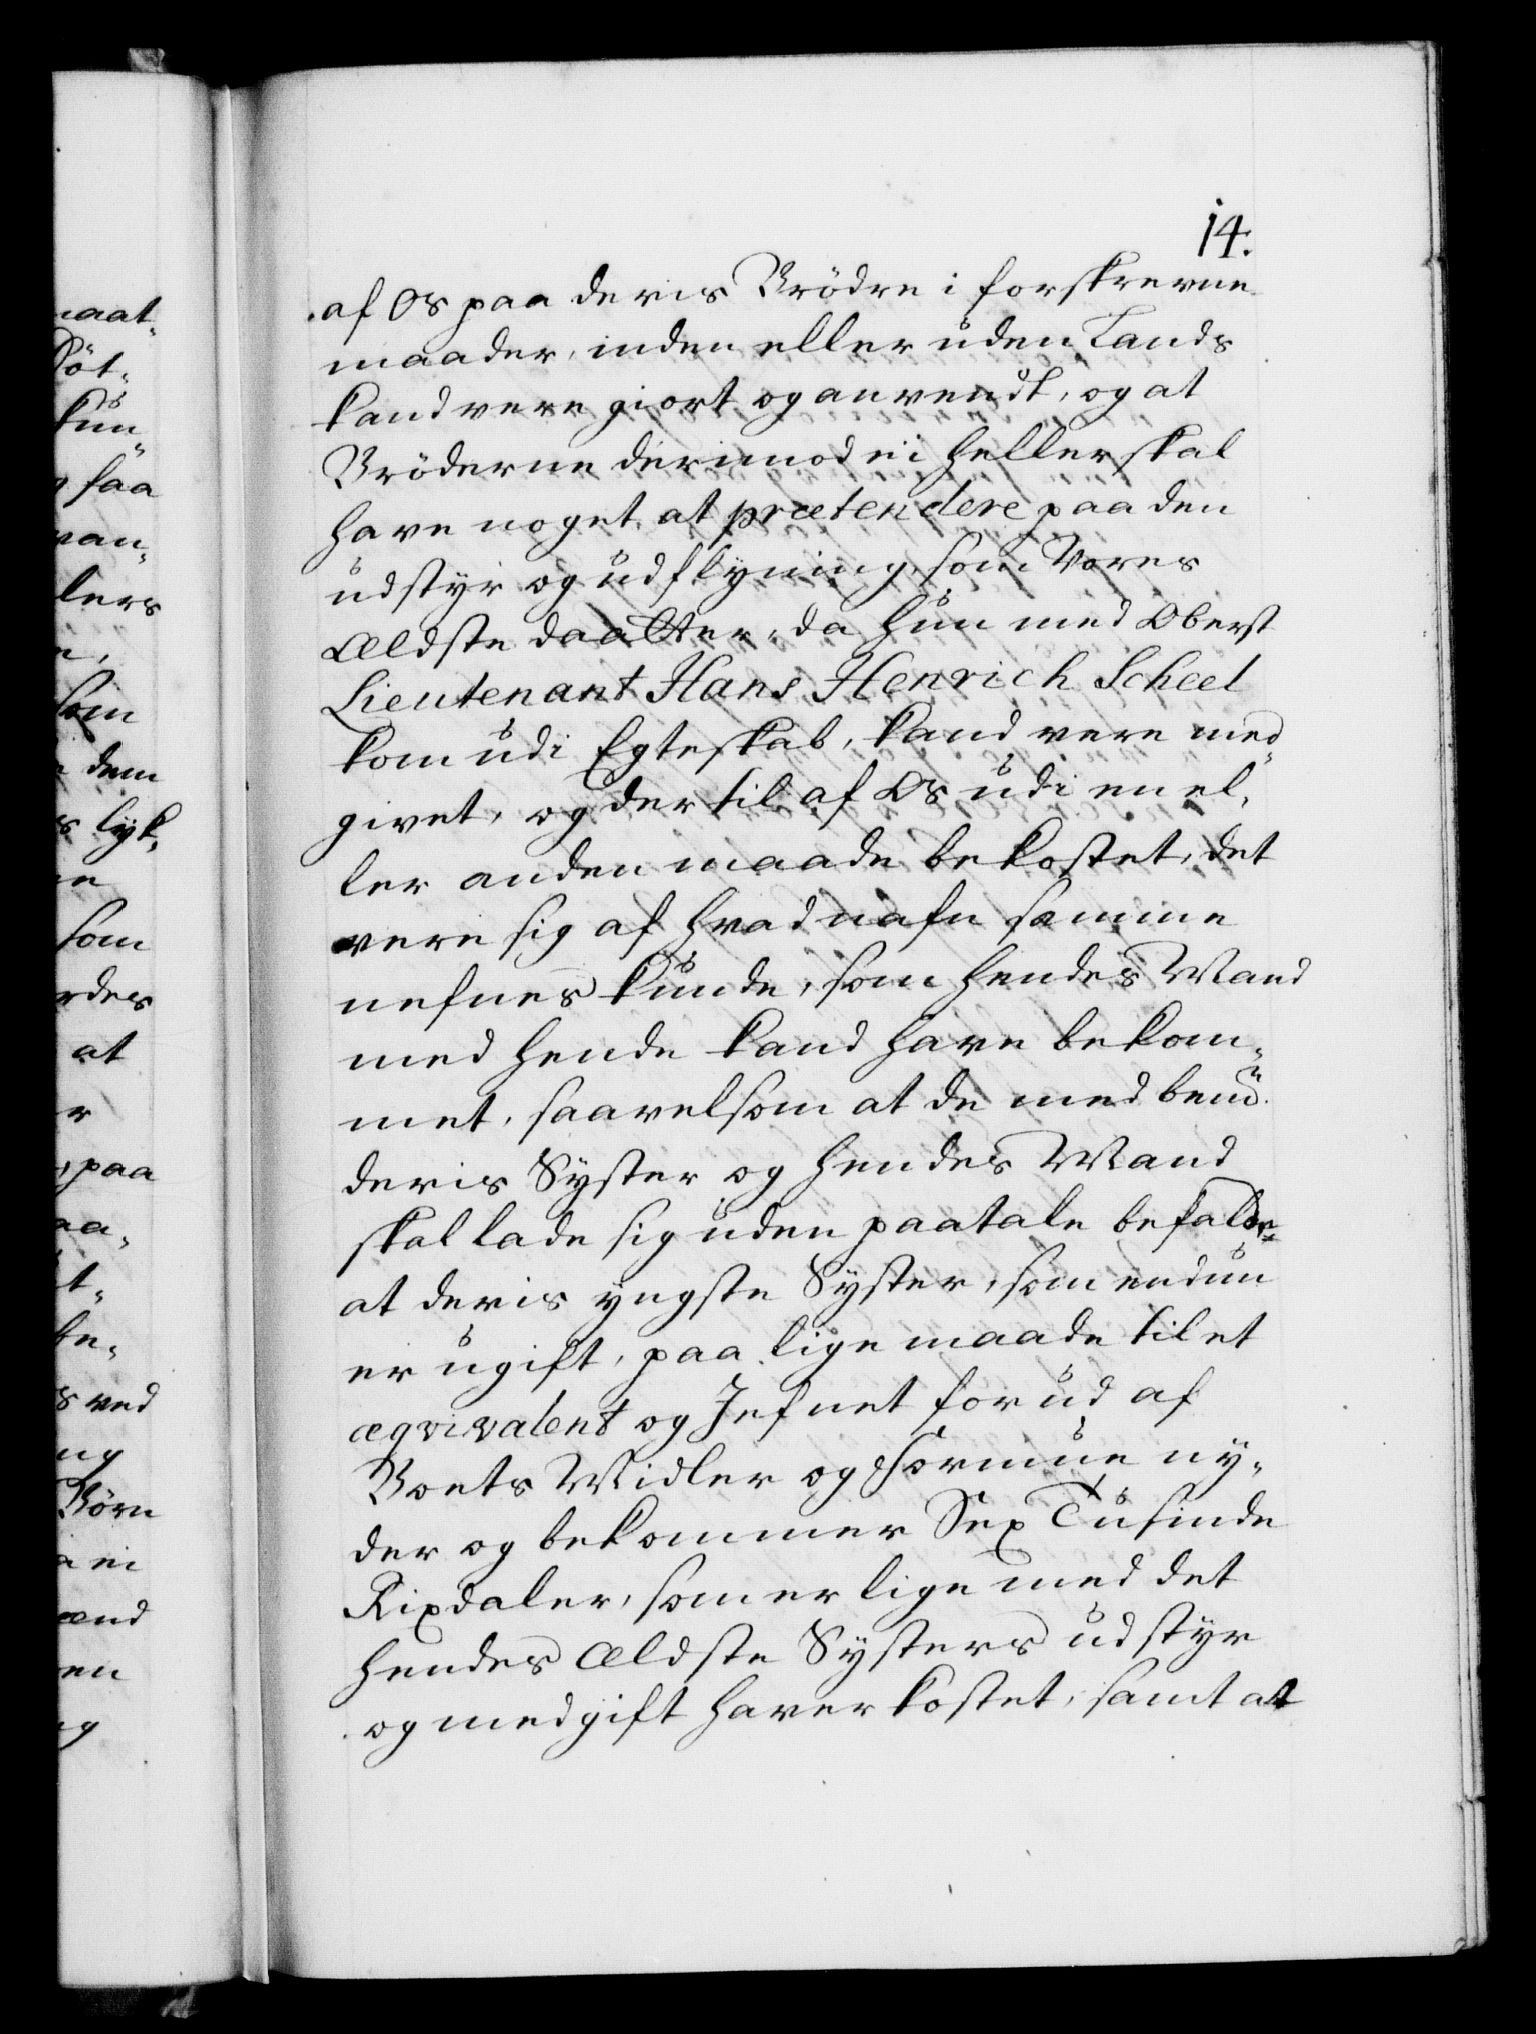 14.
af Os paa deris Brödre i forskrevne
maader, inden eller uden Lands
kand vere giort og anvendt, og at
Bröderne derimod ei heller skal
have noget at prætendere paa den
udstÿr og udflÿning, som Vores
Ældste daatter, da hun med Oberst
Lieutenant Hans Henrich Scheel
kom udi Egteskab, kand vere med
givet, og der til af Os udi en el,
ler anden maade bekostet, det
vere sig af hvad nafn samme
nefnes kunde, som hendes Mand
med hende kand have bekom„
met, saavelsom at de med bem.te
deris Sÿster og hendes Mand
skal lade sig uden paatale befalde
at deris ÿngste Sÿster, som endnu
er ugift, paa lige maade til et
æqvivalent og Jefnet forud af
Boets Midler og Formue nÿ„
der og bekommer Sex Tusinde
Rixdaler, som er lige med det
hendes Ældste Sÿsters udstÿr
og medgift haver kostet, samt at
maat„
Döt„
kun
saa
van„
lers
som
dem
lÿk,
som
rdes
at
paa
aa„
be„
ved
Börn
ei